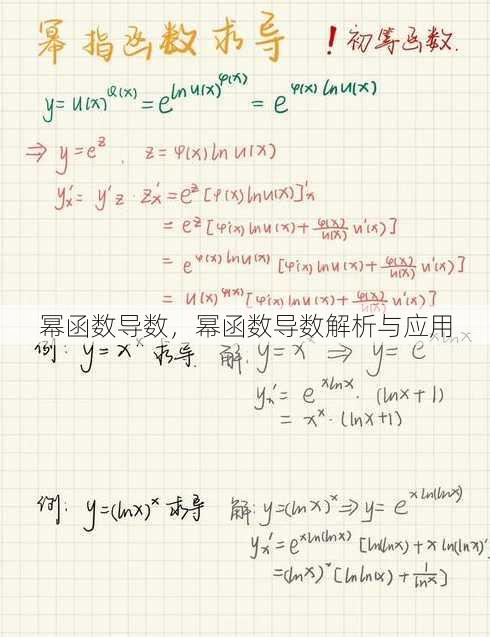 幂指函数求导 ！初等函数.
y=u(x)^φ(x)=e^ln u(x)^φ(x) = e^φ(x) ln u(x)
⇒ y=e^z . z=φ(x) ln u(x)
y'x= y'z · z'x =e^z [φ(x) ln u(x)]'x
= e^z [φ'(x) ln u(x) + φ(x)/u(x) u'(x)]
= e^φ(x) ln u(x) [φ'(x) ln u(x) + φ(x)/u(x) u'(x)]
= u(x)^φ(x) [φ'(x) ln u(x) + φ(x)/u(x) u'(x)]
幂函数导数，幂函数导数解析与应用
例: y=x^x 求导 解: y=x^x ⇒ y= e^xlnx
y'x= e^xlnx · (lnx+1)
= x^x·(lnx+1)
例: y=(lnx)^x 求导 解: y=(lnx)^x ⇒ y= e^x ln(lnx)
y'x=e^xln(lnx) [ln(lnx) + x ln(lnx)'
=(lnx)^x [ln ln(x) + 1/lnx]